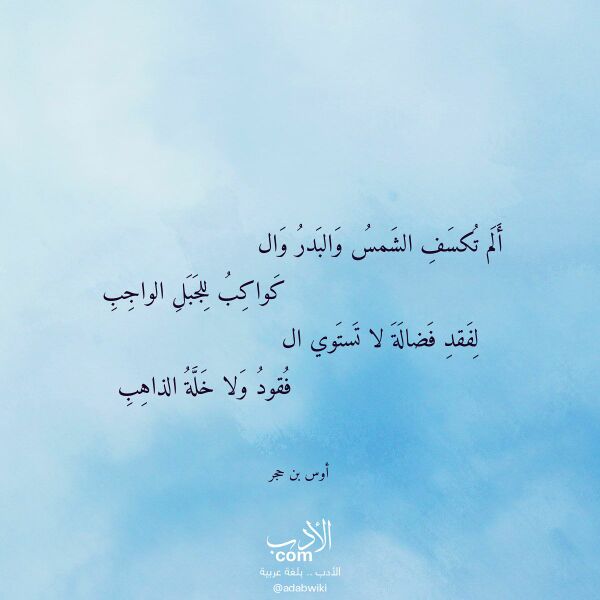 أَلَم تُكسَفِ الشَمسُ وَالبَدرُ وَال
كَواكِبُ لِلجَبَلِ الواجِبِ
لِفَقدِ فَضالَةَ لا تَستَوي ال
فُقودُ وَلا خَلَّةُ الذاهِبِ
أوس بن حجر
الأدب
com
الأدب .. بلغة عربية
@adabwiki